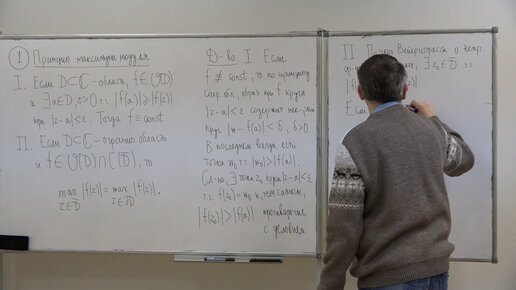 1 Принцип максимума модуля
I. Если D⊂ℂ-область, f∈O(D)
и ∃a∈D, ε>0 т.ч. |f(a)|≥|f(z)|
при |z-a|<ε. Тогда f=const
II. Если D⊂ℂ-огранич. область
и f∈O(D)∩C(D̄), то
max |f(z)| = max |f(z)|.
z∈D̄ z∈∂D
Д-во I Если
f≢const, то по принципу
сохр. обл. образ при f круга
|z-a|<ε содержит нек-рый
круг |w-f(a)|<δ, δ>0.
В последнем всегда есть
точка w₀ т.ч. |w₀|>|f(a)|.
След-но, ∃ точка z₀ круга |z-a|<ε
т.ч. f(z₀)=w₀ и, тем самым,
|f(z₀)|>|f(a)|. противоречие
с условием.
II По теор. Вейерштрасса о непр.
∃ z₀∈D̄ т.ч.
Если